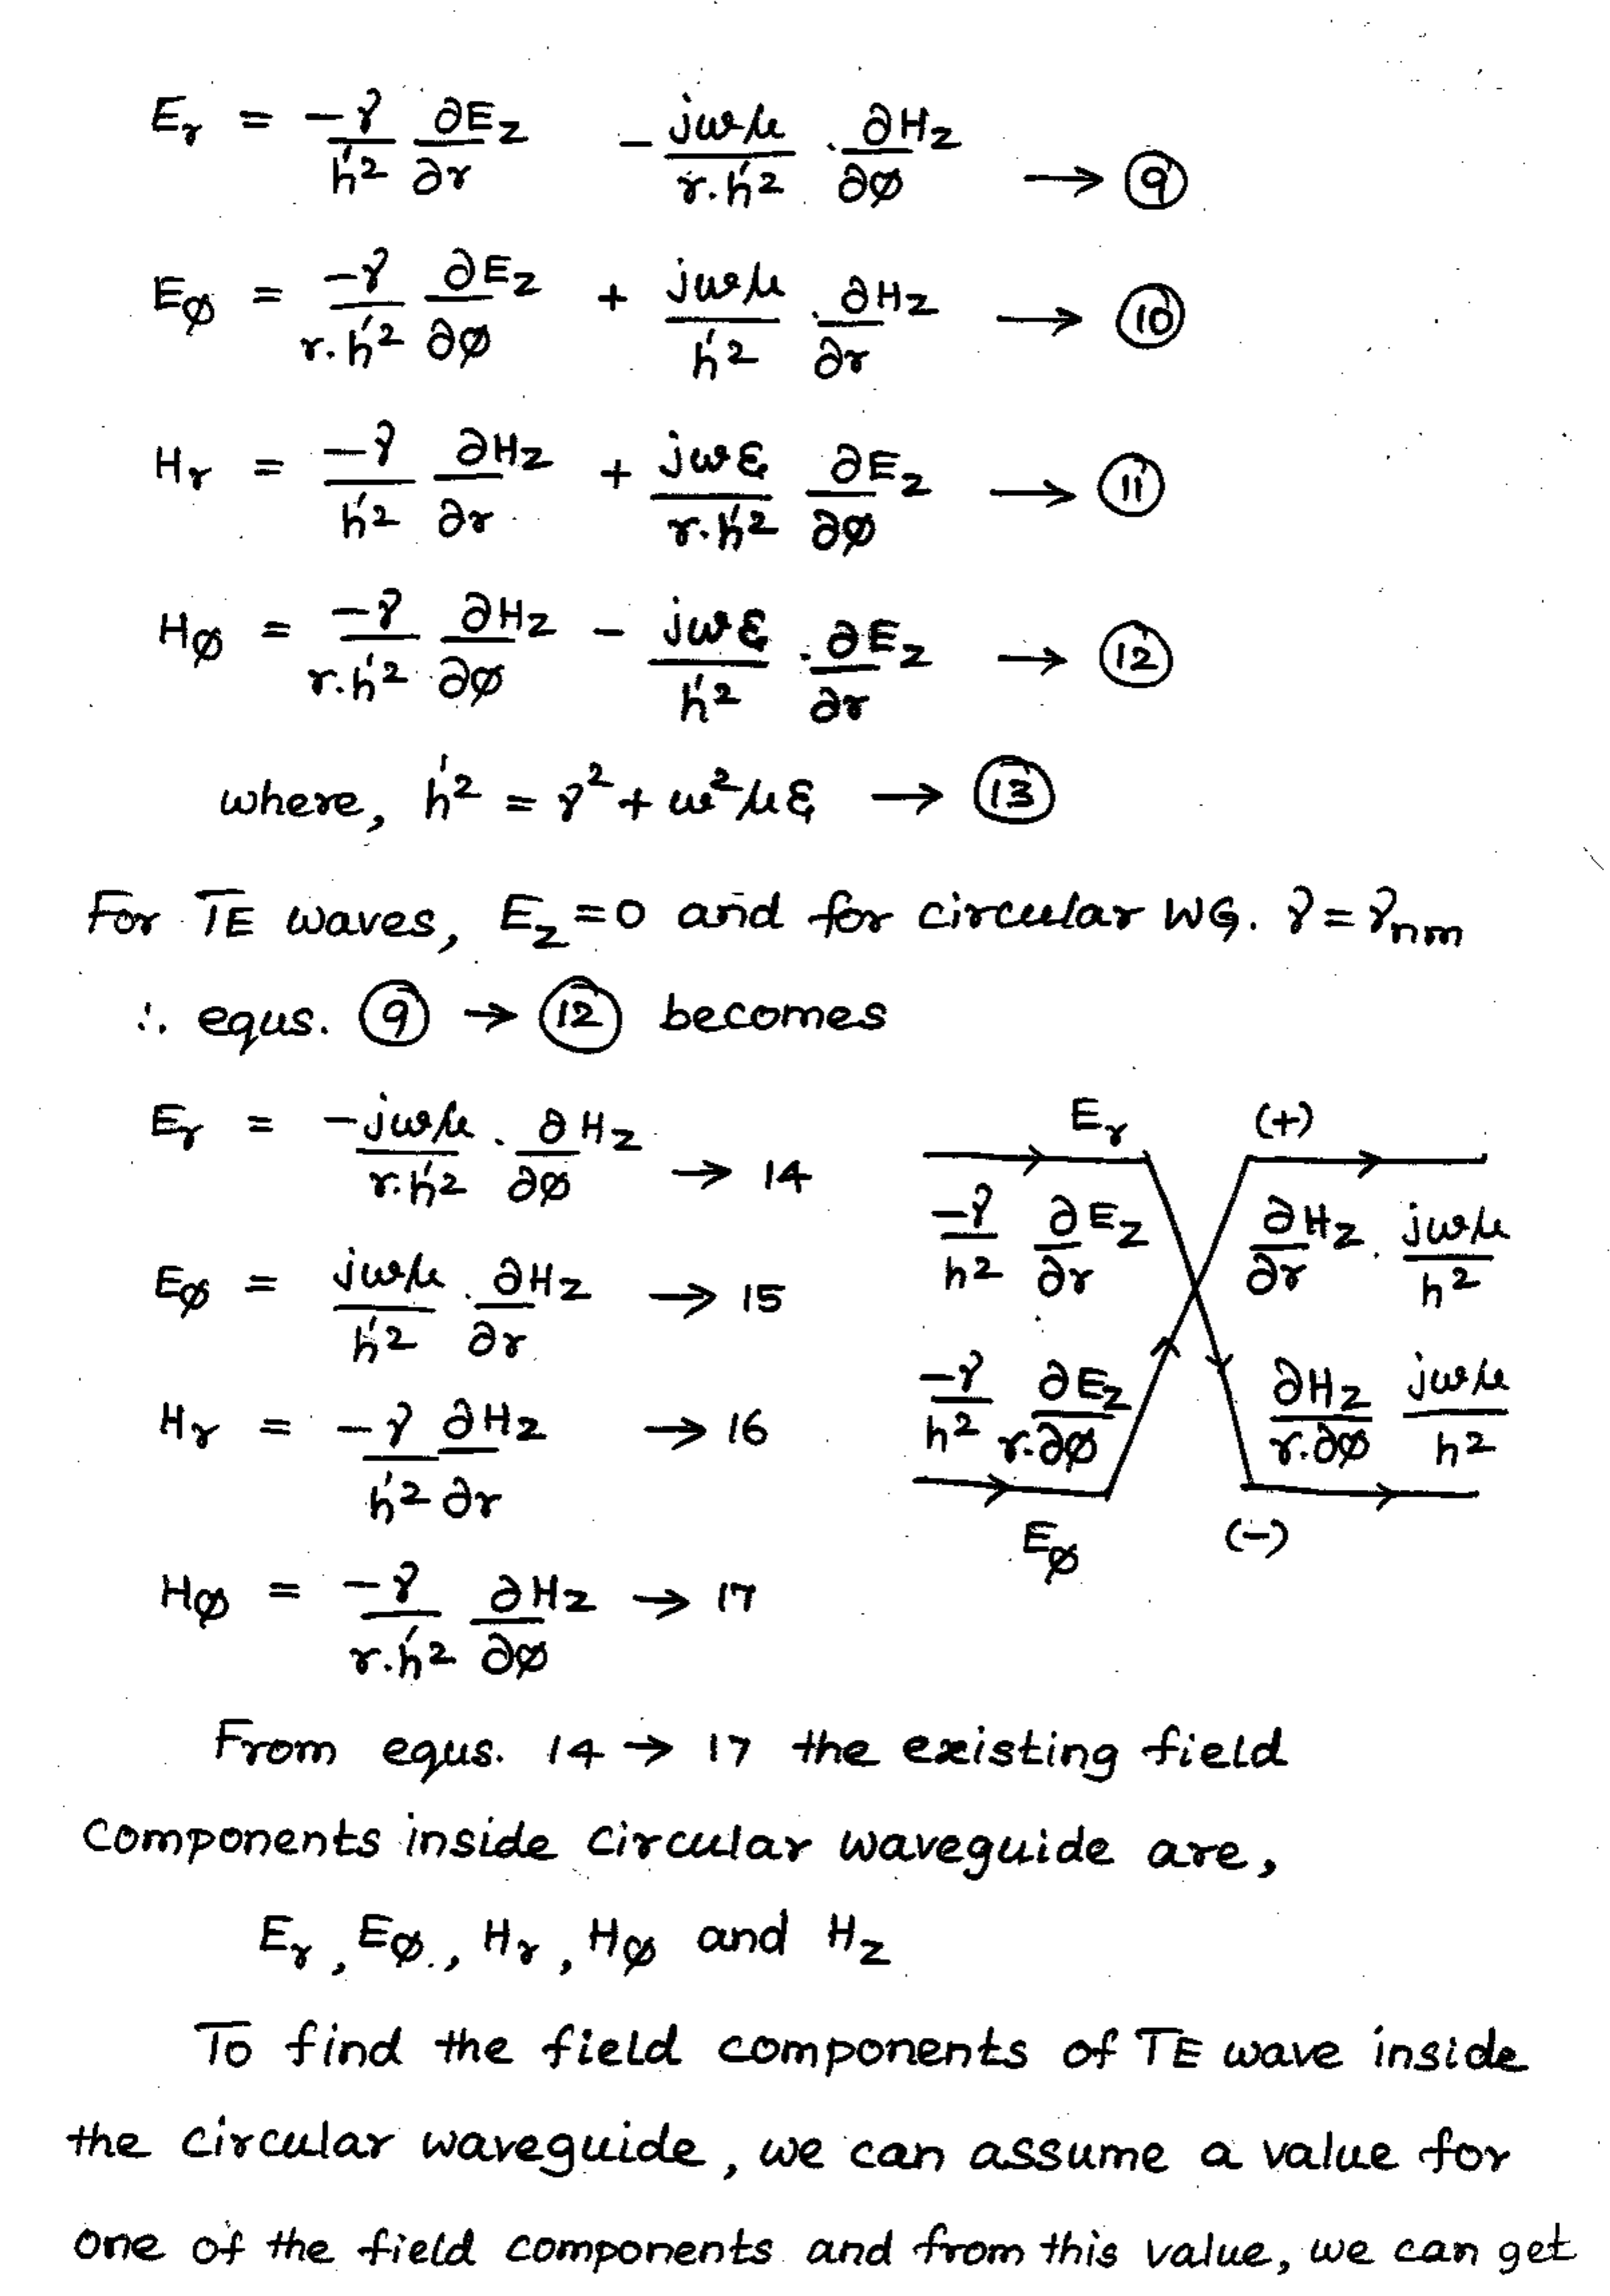 E_r = -γ/h'² ∂E_z/∂r - jωμ/r.h'² . ∂H_z/∂ø → (9)
E_ø = -γ/r.h'² ∂E_z/∂ø + jωμ/h'² . ∂H_z/∂r → (10)
H_r = -γ/h'² ∂H_z/∂r + jωε/r.h'² ∂E_z/∂ø → (11)
H_ø = -γ/r.h'² ∂H_z/∂ø - jωε/h'² . ∂E_z/∂r → (12)
where, h'² = γ² + ω²με → (13)
For TE waves, E_z = 0 and for circular WG. γ = γ_nm
∴ equs. (9) → (12) becomes
E_r = -jωμ/r.h'² . ∂H_z/∂ø → 14
E_ø = jωμ/h'² . ∂H_z/∂r → 15
H_r = -γ/h'² ∂H_z/∂r → 16
H_ø = -γ/r.h'² ∂H_z/∂ø → 17
E_r (+)
-γ/h² ∂E_z/∂r ∂H_z/∂r . jωμ/h²
-γ/h² ∂E_z/r.∂ø ∂H_z/r.∂ø jωμ/h²
E_ø (-)
From equs. 14 → 17 the existing field
components inside circular waveguide are,
E_r, E_ø., H_r, H_ø and H_z
To find the field components of TE wave inside
the circular waveguide, we can assume a value for
one of the field components and from this value, we can get